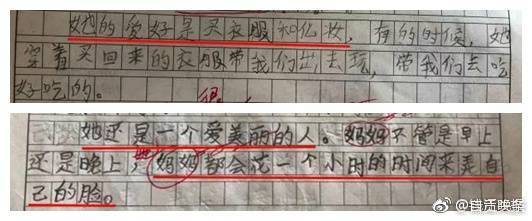 她的爱好是买衣服和化妆，有的时候，她
穿着买回来的衣服带我们出去玩，带我们去吃
好吃的。
很
她还是一个爱美丽的人。妈妈不管是早上
还是晚上，她妈妈都会花一个小时的时间来弄自
己的脸。